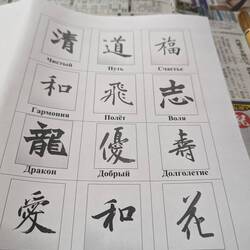 清 道 福
Чистый Путь Счастье
和 飛 志
Гармония Полёт Воля
龍 優 寿
Дракон Добрый Долголетие
愛 和 花